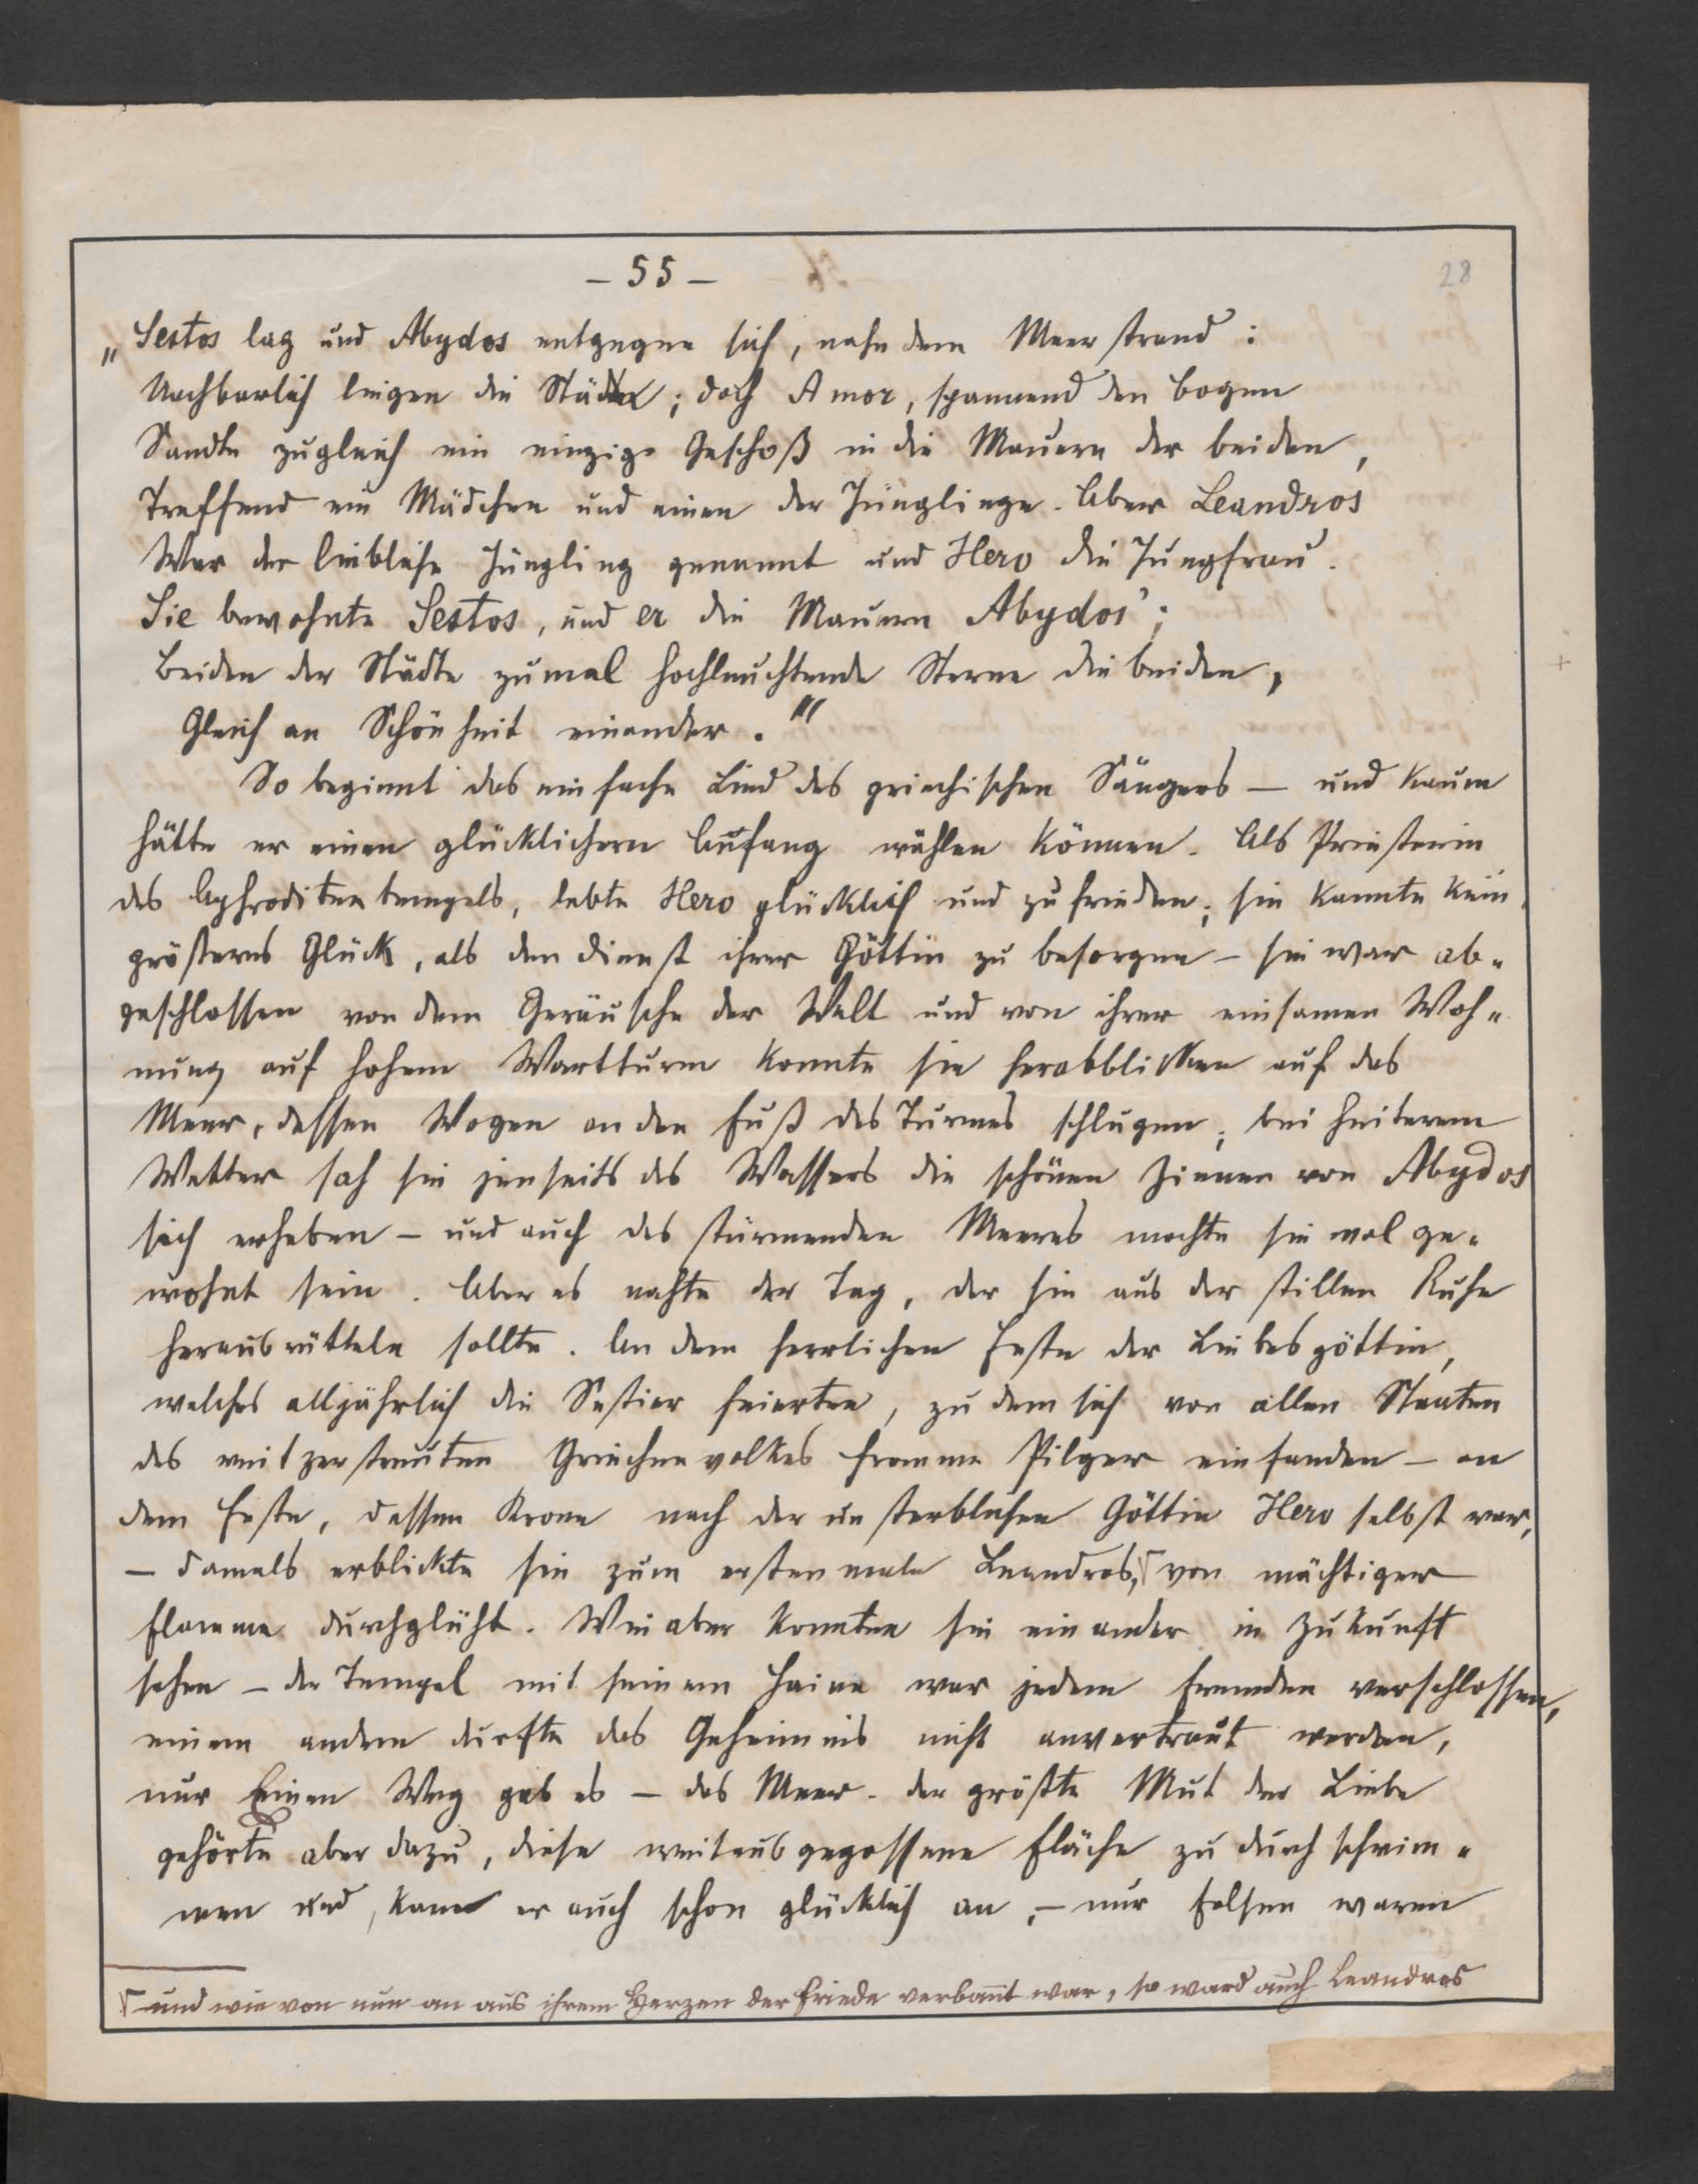 – 55 –
28
„Sestos lag und Abydos entgegen sich, nahe dem Meerstrand:
Nachbarlich liegen die Städte; doch Amor, spannend den Bogen
Sandte zugleich ein einzig Geschoß in die Mauern der beiden,
Treffend ein Mädchen und einen der Jünglinge. Aber Leandros
War der liebliche Jüngling genannt und Hero die Jungfrau.
Sie bewohnte Sestos, und er die Mauern Abydos';
Beiden der Städte zumal hochleuchtende Sterne die beiden,
Gleich an Schönheit einander."
So beginnt das einfache Lied des griechischen Sängers – und kaum
hätte er einen glücklichern Anfang wählen können. Als Priesterin
des Aphroditentempels, lebte Hero glücklich und zufrieden; sie kannte kein
größeres Glück, als den Dienst ihrer Göttin zu besorgen – sie war ab-
geschlossen von dem Geräusche der Welt und von ihrer einsamen Woh-
nung auf hohem Wartturm konnte sie herabblicken auf das
Meer, dessen Wogen an den Fuß des Turmes schlugen; bei heiterem
Wetter sah sie jenseits des Wassers die schönen Zinnen von Abydos
sich erheben – und auch des stürmenden Meeres mochte sie wol ge-
wohnt sein. Aber es nahte der Tag, der sie aus der stillen Ruhe
herausrütteln sollte. An dem herrlichen Feste der Liebesgöttin,
welches alljährlich die Sestier feierten, zu dem sich von allen Staaten
des weitzerstreuten Griechenvolkes fromme Pilger einfanden – an
dem Feste, dessen Krone nach der unsterblichen Göttin Hero selbst war,
– damals erblickte sie zum erstenmale Leandros,⌈ von mächtiger
Flamme durchglüht. Wie aber konnten sie einander in Zukunft
sehen – der Tempel mit seinem Haine war jedem Fremden verschlossen,
einem andern durfte das Geheimnis nicht anvertraut werden,
nur Einen Weg gab es – das Meer. der größte Mut der Liebe
gehörte aber dazu, diese weitausgegossene Fläche zu durchschwim-
men und, kam er auch schon glücklich an, – nur Felsen waren
⌈ und wie von nun an aus ihrem Herzen der Friede verbannt war, so ward auch Leandros